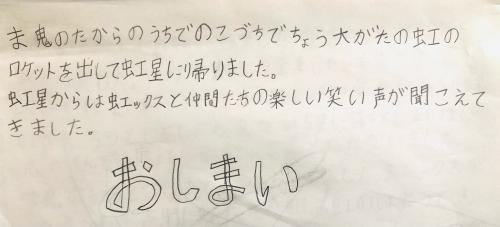 ま鬼のたからのうちでのこづちでちょう大がたの虹の
ロケットを出して虹星に帰りました。
虹星からは虹エックスと仲間たちの楽しい笑い声が聞こえて
きました。
おしまい